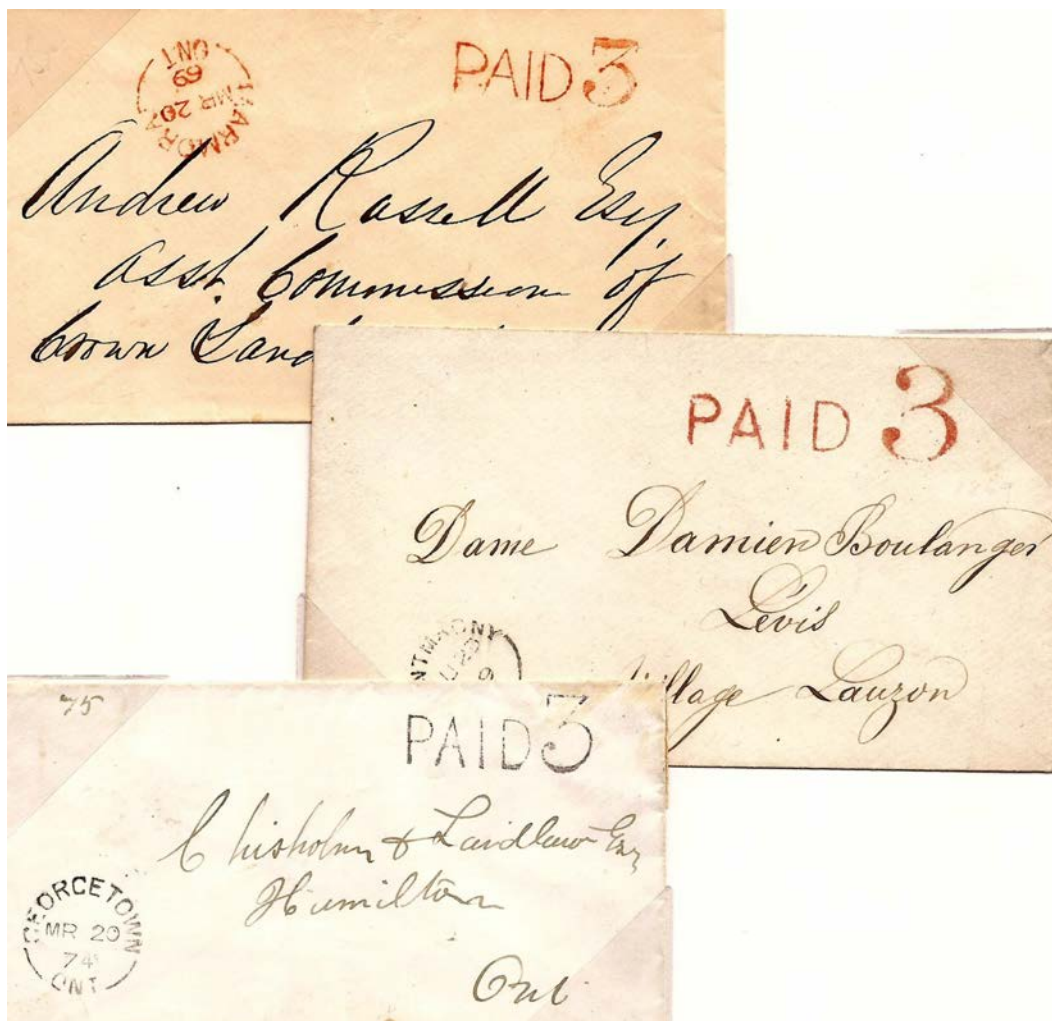 MARMORA
MR 20
69
ONT
PAID 3
Andrew Russell Esq.
Asst. Commissioner of
Crown Land
PAID 3
Dame Damien Boulanger
Levis
Village Lauzon
NTMAGNY
75
PAID 3
Chisholm & Laidlaw Esq
Hamilton
Ont
GEORGETOWN
MR 20
74
ONT